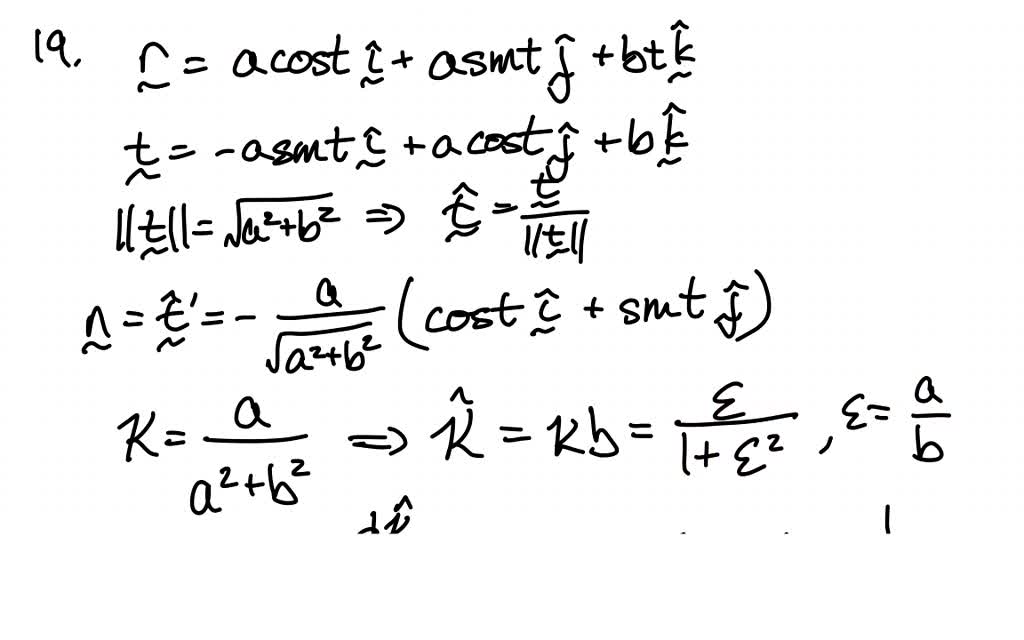 19. r̰ = a cos t î + a sin t ĵ + b t k̂
t̰ = - a sin t î + a cos t ĵ + b k̂
||t̰|| = √(a²+b²) ⇒ t̰̂ = t̰ / ||t̰||
n̰ = t̰̂' = - a/√(a²+b²) (cos t î + sin t ĵ)
κ = a/(a²+b²) ⇒ κ̂ = κb = ε/(1+ε²), ε = a/b